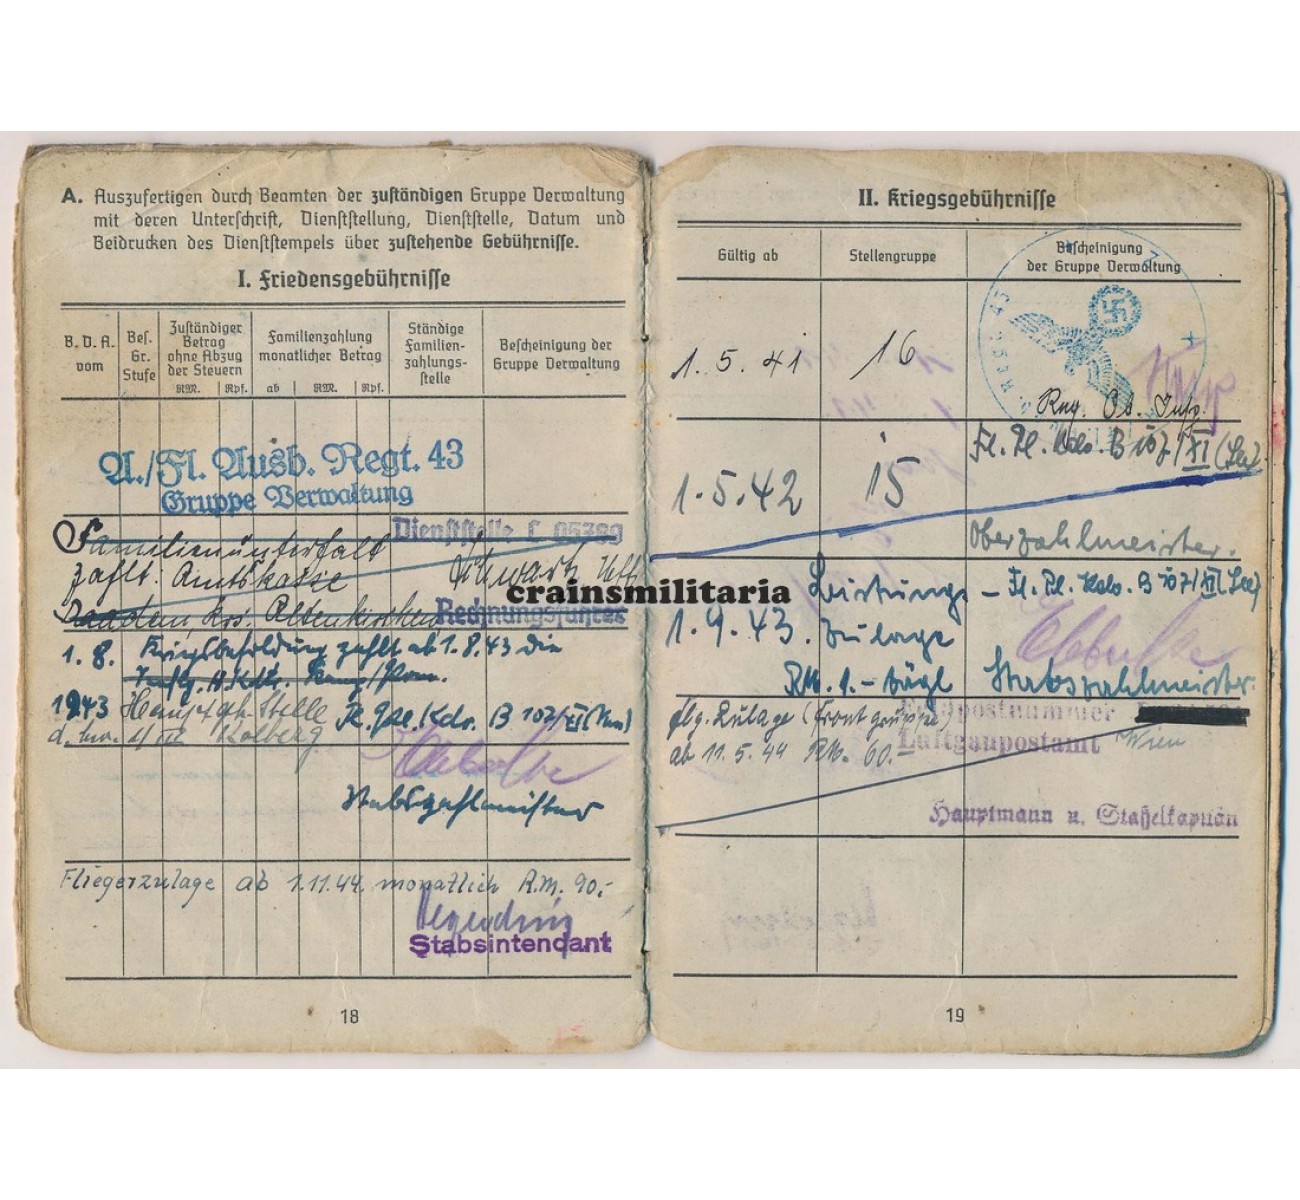 A. Auszufertigen durch Beamten der zuständigen Gruppe Verwaltung
mit deren Unterschrift, Dienststellung, Dienststelle, Datum und
Beidrucken des Dienststempels über zustehende Gebührnisse.
I. Friedensgebührnisse
B. D. A. vom
Bes. Gr. Stufe
Zuständiger Betrag ohne Abzug der Steuern
RM. Rpf.
Familienzahlung monatlicher Betrag
ab RM. Rpf.
Ständige Familien-zahlungs-stelle
Bescheinigung der Gruppe Verwaltung
A./Fl. Ausb. Regt. 43
Gruppe Verwaltung
Dienststelle L
Familienunterhalt
zahlt: Amtskasse
Schwartz Uffz
Krs. Altenkirchen
Rechnungsführer
1. 8. Kriegsbesoldung zahlt ab 1.8.43 die
1943
Stelle
Kolberg
B 107/XI
Stabszahlmeister
Fliegerzulage ab 1.11.44 monatlich R.M. 90.-
Stabsintendant
18
II. Kriegsgebührnisse
Gültig ab
Stellengruppe
Bescheinigung
der Gruppe Verwaltung
1. 5. 41
16
Reg. Ob. Insp.
1. 5. 42
15
B 107/XI (See)
Oberzahlmeister.
crainsmilitaria
Leistungs-
B 107/XI (See)
1. 9. 43. zulage
RM. 1.- tägl
Stabszahlmeister.
flg. Zulage (Frontgruppe)
Feldpostnummer
ab 11. 5. 44 RM. 60.-
Luftgaupostamt Wien
Hauptmann u. Staffelkapitän
19